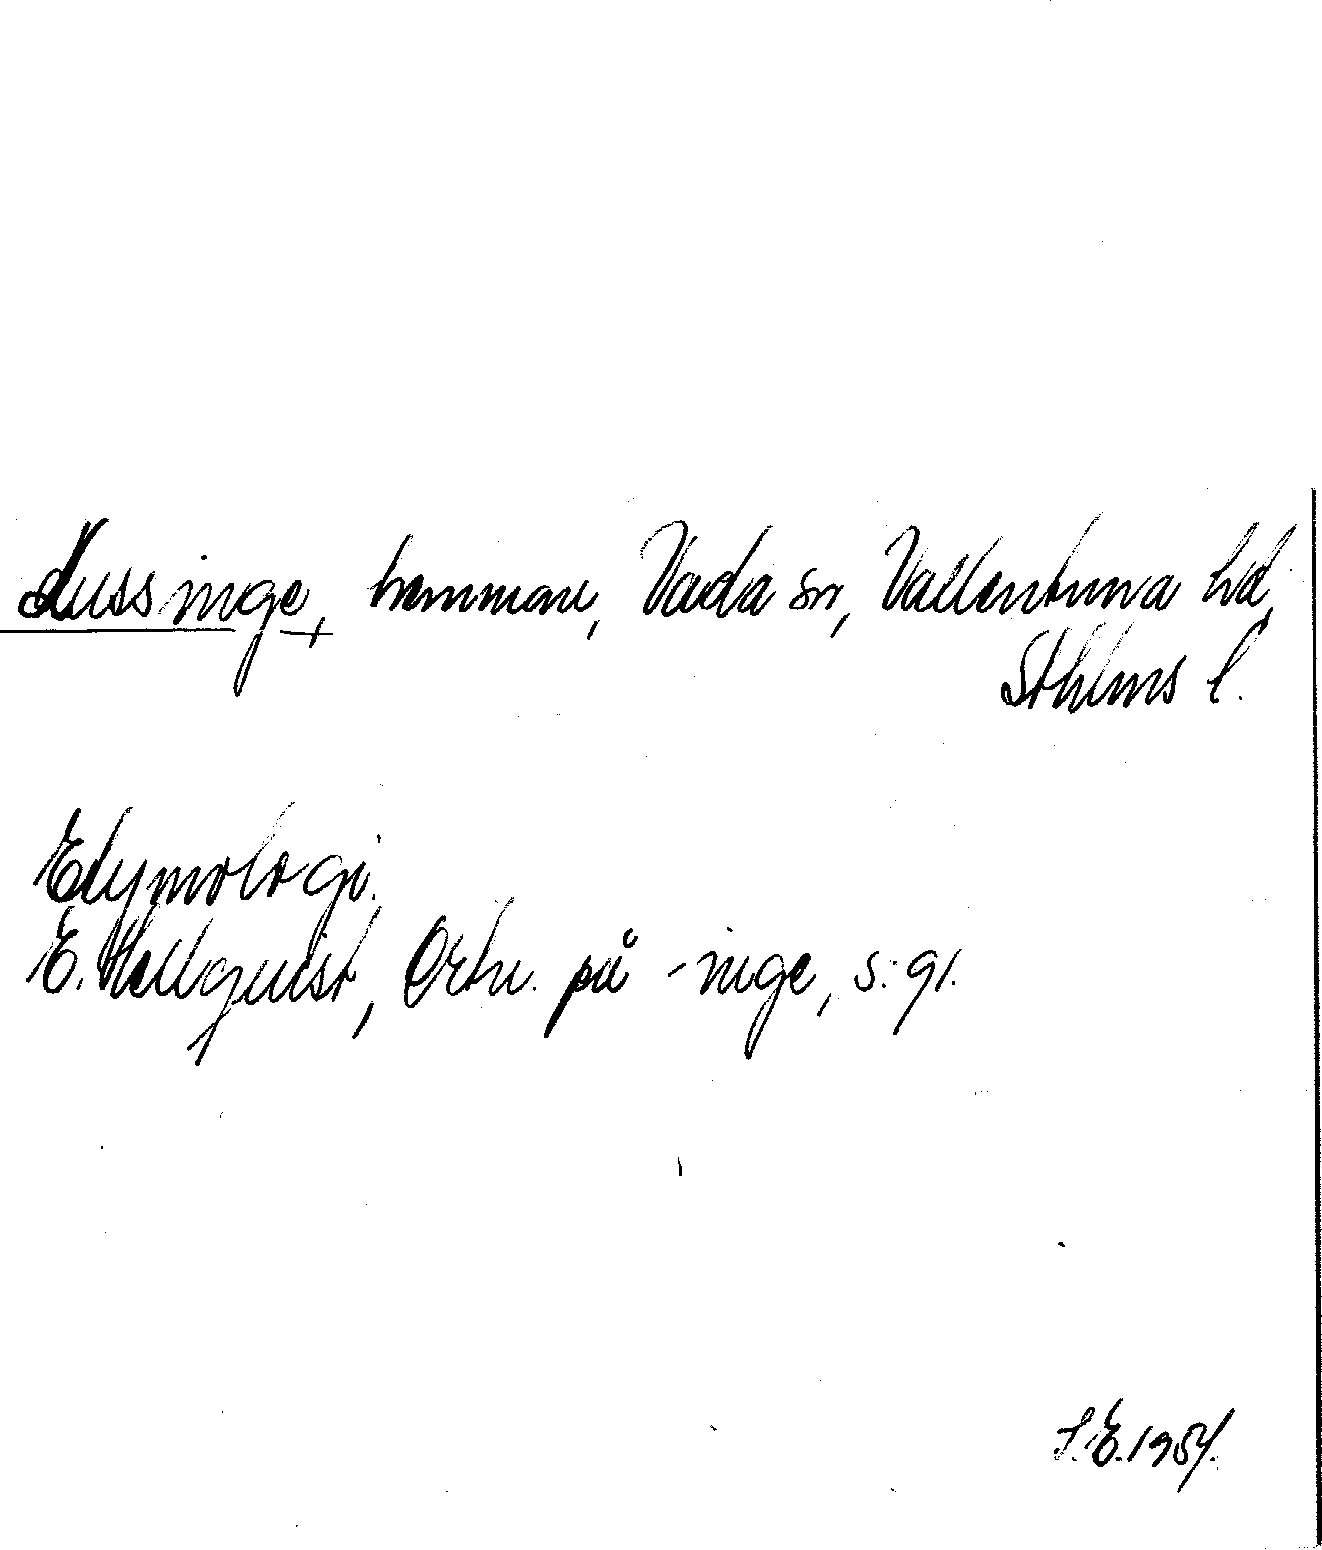 Kussinge, hemman, Vada sn, Vallentuna hd,
Sthlms l.
Etymologi.
E. Hellquist, Ortn. på -inge, s. 91.
S.E. 1954.